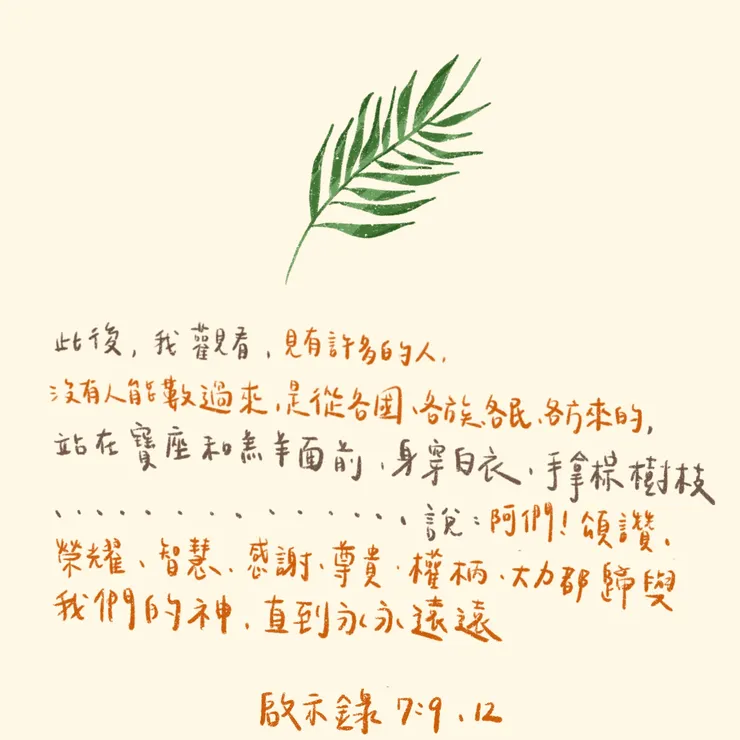 此後，我觀看，見有許多的人，
沒有人能數過來，是從各國、各族、各民、各方來的，
站在寶座和羔羊面前，身穿白衣，手拿棕樹枝
..............說：阿們！頌讚、
榮耀、智慧、感謝、尊貴、權柄、大力都歸與
我們的神，直到永永遠遠
啟示錄 7:9、12